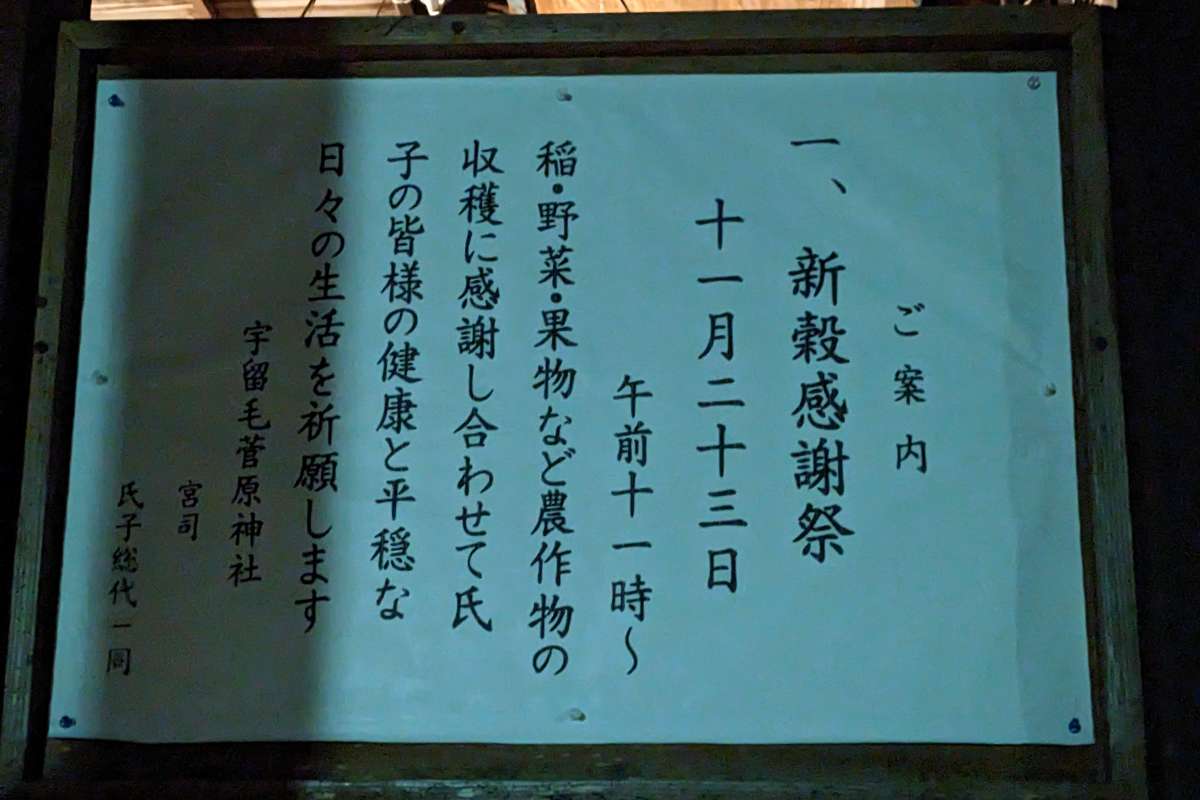 ご案内
一、新穀感謝祭
十一月二十三日
午前十一時～
稲・野菜・果物など農作物の
収穫に感謝し合わせて氏
子の皆様の健康と平穏な
日々の生活を祈願します
宇留毛菅原神社
宮司
氏子総代一同